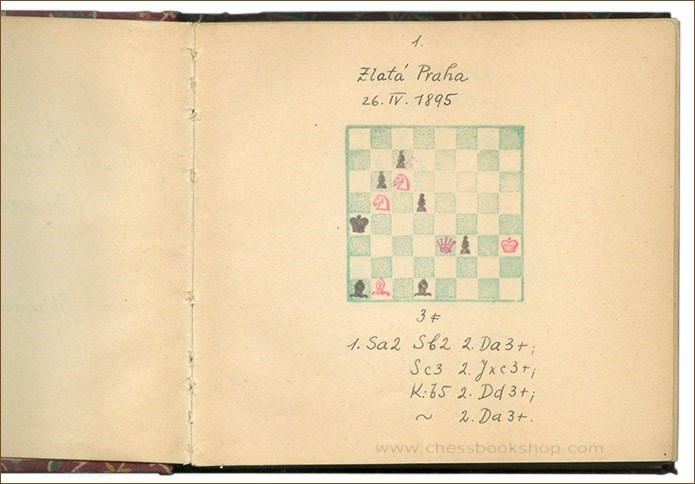 1.
Zlatá Praha
26. IV. 1895
3 ‡
1. Sa2 Sb2 2. Da3+;
Sc3 2. Jxc3+;
K:b5 2. Dd3+;
~ 2. Da3+.
www.chessbookshop.com